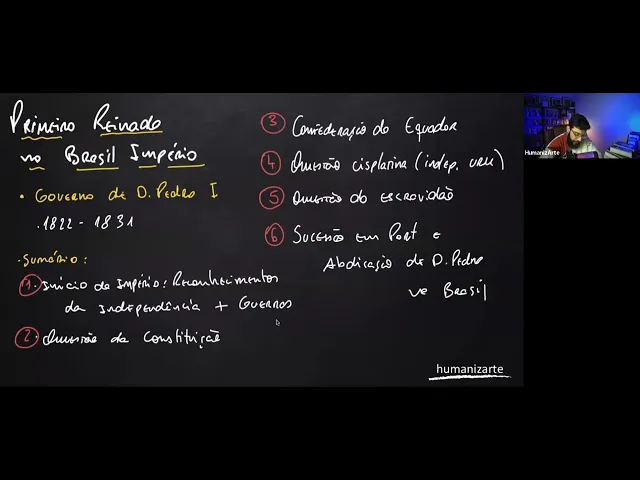 Primeiro Reinado
no Brasil Império
• Governo de D. Pedro I
. 1822 - 1831
. Sumário:
1. Início do Império: Reconhecimentos
da Independência + Guerras
2. Questão da Constituição
3 Confederação do Equador
4 Questão cisplatina (indep. URU)
5 Questão da escravidão
6 Sucessão em Port e
Abdicação de D. Pedro
no Brasil
humanizarte
HumanizArte